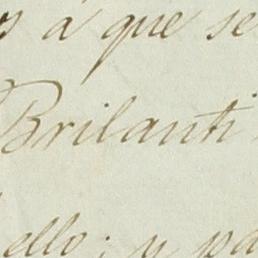 os a que se
Brilanti
ello; y pa